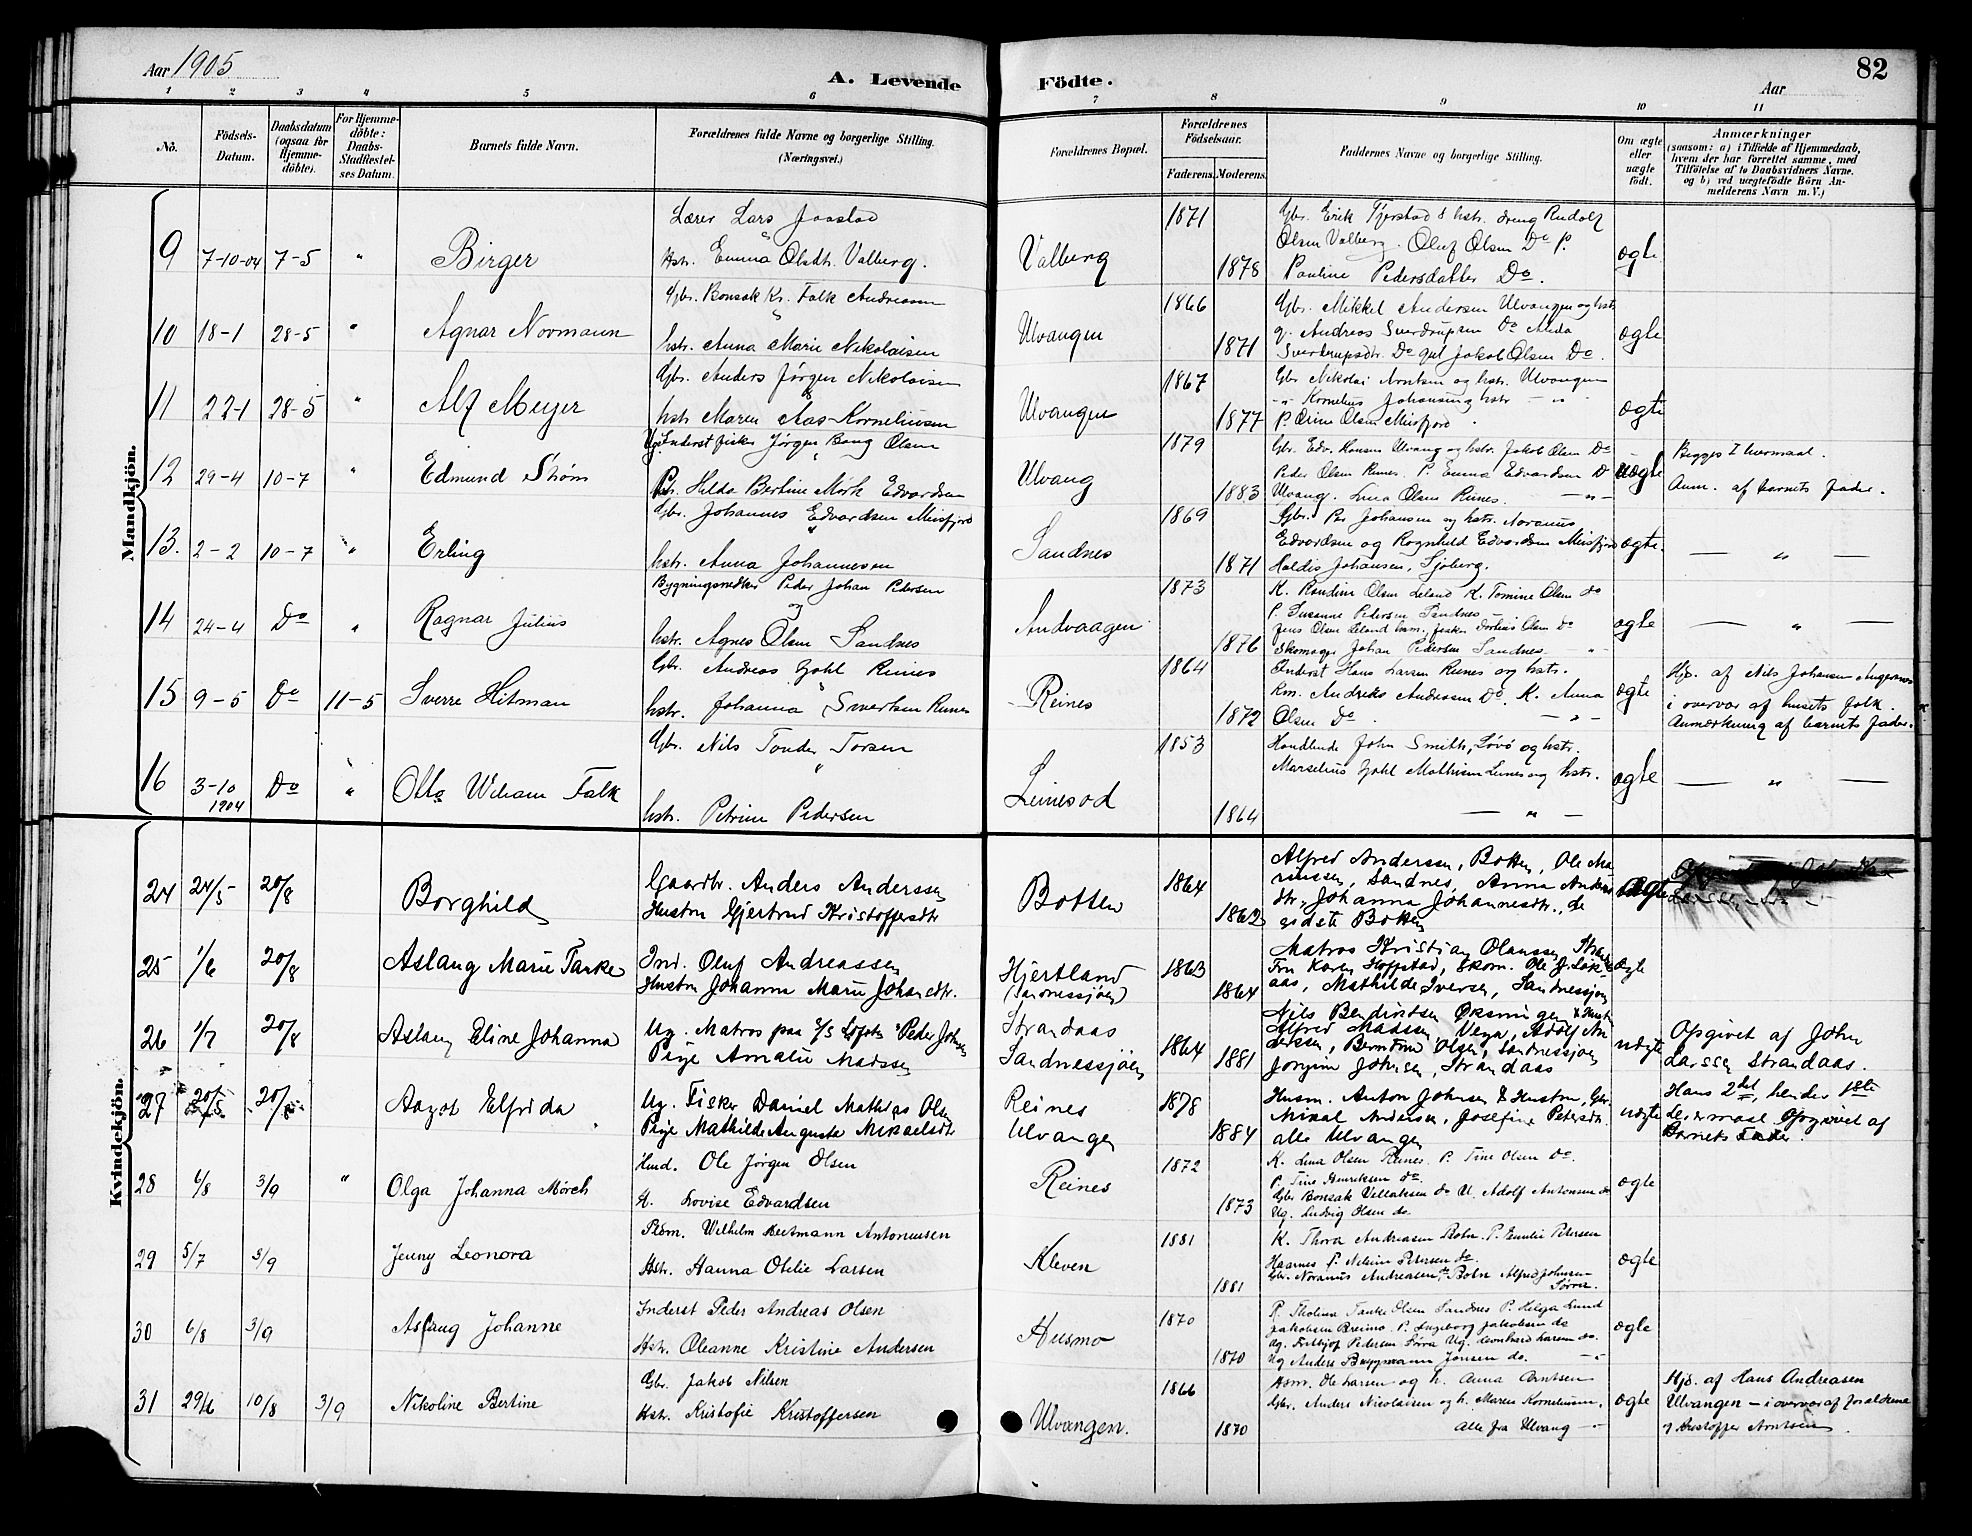 Aar 1905
A. Levende
Födte.
Aar
82
1 2 3 4 5 6 7 8 9 10 11
No.
Födsels-Datum.
Daabsdatum (ogsaa for Hjemme-döbte).
For Hjemme-döbte: Daabs-Stadfæstel-ses Datum.
Barnets fulde Navn.
Forældrenes fulde Navne og borgerlige Stilling. (Næringsvei.)
Forældrenes Bopæl.
Forældrenes Födselsaar.
Faderens. Moderens.
Faddernes Navne og borgerlige Stilling.
Om ægte eller uægte födt.
Anmærkninger
(saasom: a) i Tilfælde af Hjemmedaab, hvem der har forrettet samme, med Tilföielse af to Daabsvidners Navne. og b) ved uægtefödte Börn An-melderens Navn m. V.)
Mandkjön.
9 7-10-04 7-5 " Birger
Lærer Lars Jaastad
Hstr. Emma Olsdtr. Valberg.
Valberg 1871 1878
Gbr. Erik Tjerstad & hstr. dreng Rudolf
Olsen Valberg. Oluf Olsen Do P.
Pauline Pedersdatter Do.
ægte
10 18-1 28-5 " Agnar Normann
Gbr. Bonsak Kr. Falk Andreasen
hstr. Anna Marie Nikolaisen
Ulvangen 1866 1871
Gbr. Mikkel Andersen Ulvangen og hstr
g. Andreas Sverdrupsen Do Alida
Sverdrupsdtr. Do gut Jakob Olsen Do.
ægte
11 22-1 28-5 " Alf Meyer
Gbr. Anders Jørgen Nikolaisen
hstr Maren Aas-Korneliussen
Ulvangen 1867 1877
Gbr Nikolai Arntsen og hstr. Ulvangen
-"- Kornelius Johansen og hstr - " -
P. Oline Olsen Meisfjord.
ægte
12 29-4 10-7 " Edmund Strøm
Ug. Inderst fisker Jørgen Bang Olsen
P. Hilda Bertine Mørk Edvardsen
Ulvang 1879 1883
Gbr. Edv. Hansen Ulvang og hstr. Jakob Olsen Do
Peder Olsen Reines. P. Emma Edvardsen Do
Ulvang. Lina Olsen Reines. -"-
uægte
Begges I leiermaal.
Anm. af barnets fader.
13. 2-2 10-7 " Erling
Gbr. Johannes Edvardsen Meisfjord
hstr. Anna Johannesen
Sandnes 1869 1871
Gbr. Per Johansen og hstr. Noranus
Edvardsen og Ragnhild Edvardsen Meisfjord
Haldis Johansen, Sjøberg.
ægte. — " —
14 24-4 Do " Ragnar Julius
Bygningssnedker Peder Johan Pedersen
og
hstr. Agnes Olsen Sandnes
Andvaagen 1873 1876
K. Randine Olsen Leland K. Tomine Olsen do
P. Susanne Pedersen Sandnes
Jens Olsen Leland hsm., fisker Dortius Olsen Do
Skomager Johan Pedersen Sandnes -"-
ægte — " —
15 9-5 Do 11-5 Sverre Hitman
Gbr. Andreas Zahl Reines
hstr. Johanna Sivertsen Reines
Reines 1864 1872
Inderst Hans Larsen Reines og hstr.
Km. Andreas Andreassen Do. K. Anna
Olsen Do. -"-
ægte
Hjd. af Nils Johansen
i overvær af husets folk.
Anmerkning af barnets fader.
16 3-10 1904 Do " Otto Wiliam Falk
Gbr. Nils Tønder Torsen
hstr. Petrine Pedersen
Leinesod 1853 1864
Handlende John Smith, Løvø og hstr.
Marselius Zahl Mathisen Leines og hstr.
— " —
ægte — " —
Kvindekjön.
24 24/5 20/8 Borghild
Gaardbr. Anders Anderssen
Hustru Gjertrud Kristoffersdtr
Botten 1864 1862
Alfred Anderssen, Botten, Ole Ma-
riussen, Sandnes, Anna Anders
dtr, Johanna Johannesdtr., de
sidste Botten
ægte
25 1/6 20/8 Aslaug Marie Tanke
Ind. Oluf Andreassen
Hustru Johanna Marie Johansdtr.
Hjertland
(Sandnessjøen) 1863 1864
Matros Kristian Olaussen, Strand
Fru Karen Hoffstad, Skom. Ole J. Løk-
aas, Mathilde Iversen, Sandnessjøen
ægte
26 1/7 20/8 Aslaug Eline Johanna
Ug. Matros paa D/S Lofoten Peder Johnsen
Pige Amalie Madssen
Strandaas
Sandnessjøen 1864 1881
Nils Bendiktsen Øksningen & Hustru
Alfred Madsen Vega, Adolf An
derssen, Berntine Olsen, Sandnessjøen
Jorgine Johnsen, Strandaas
uægte
Opgivet af John
Larssen Strandaas.
27 20/5 20/8 Aagot Elfrida
Ug. Fisker Daniel Mathias Olsen
Pige Mathilde Augusta Mikaelsdtr
Reines
Ulvangen 1878 1884
Husm. Anton Johnsen & Hustru, Gbr.
Mikal Andersen, Josefine Petersdtr.
alle Ulvangen
uægte
Hans 2det, hendes 1ste
leiermaal. Opgivet af
Barnets Fader.
28 6/8 3/9 " Olga Johanna Mörch
Hmd. Ole Jørgen Olsen
H. Lovise Edvardsen
Reines 1872 1873
K. Lina Olsen Reines. P. Tine Olsen do.
P. Tine Henriksen do.
Gbr Bonsak Villaksen do U. Adolf Antonsen do
Ug. Ludvig Olsen do.
ægte
29 5/7 3/9 Jenny Leonora
Wilhelm Antoniussen
Hstr. Hanna Otelie Larsen
Kleven 1881 1881
K. Thora Andreasen Botn. P. Emilie Petersen
P. Petersen do.
Gbr. Noranus Andreasen, Botn Alfred Johnsen
ægte
30 6/8 3/9 Aslaug Johanne
Inderst Peder Andreas Olsen
Hstr. Oleanne Kristine Andersen
Husmo 1870 1870
P. Tholina Tanke Olsen Sandnes P. Helga Lund
Jakobsen Breimo. P. Ingeborg Jakobsen do
Ug. Fritjof Pedersen Sørra Ug. Leonhard Larsen do.
Ug Anders Jensen do. -"-
ægte
31 29/6 10/8 3/9 Nikoline Bertine
Gbr. Jakob Nilsen
Hstr. Kristofie Kristoffersen
Ulvangen. 1866 1870
Hsm. Ole Larsen og h. Anna Arntsen
Gbr. Anders Nicolaisen og h. Maren Korneliussen.
Alle fra Ulvang -"-
ægte
Hjd. af Hans Andreasen
Ulvangen - i overvær af forældrene
og Kristoffer Arntsen.